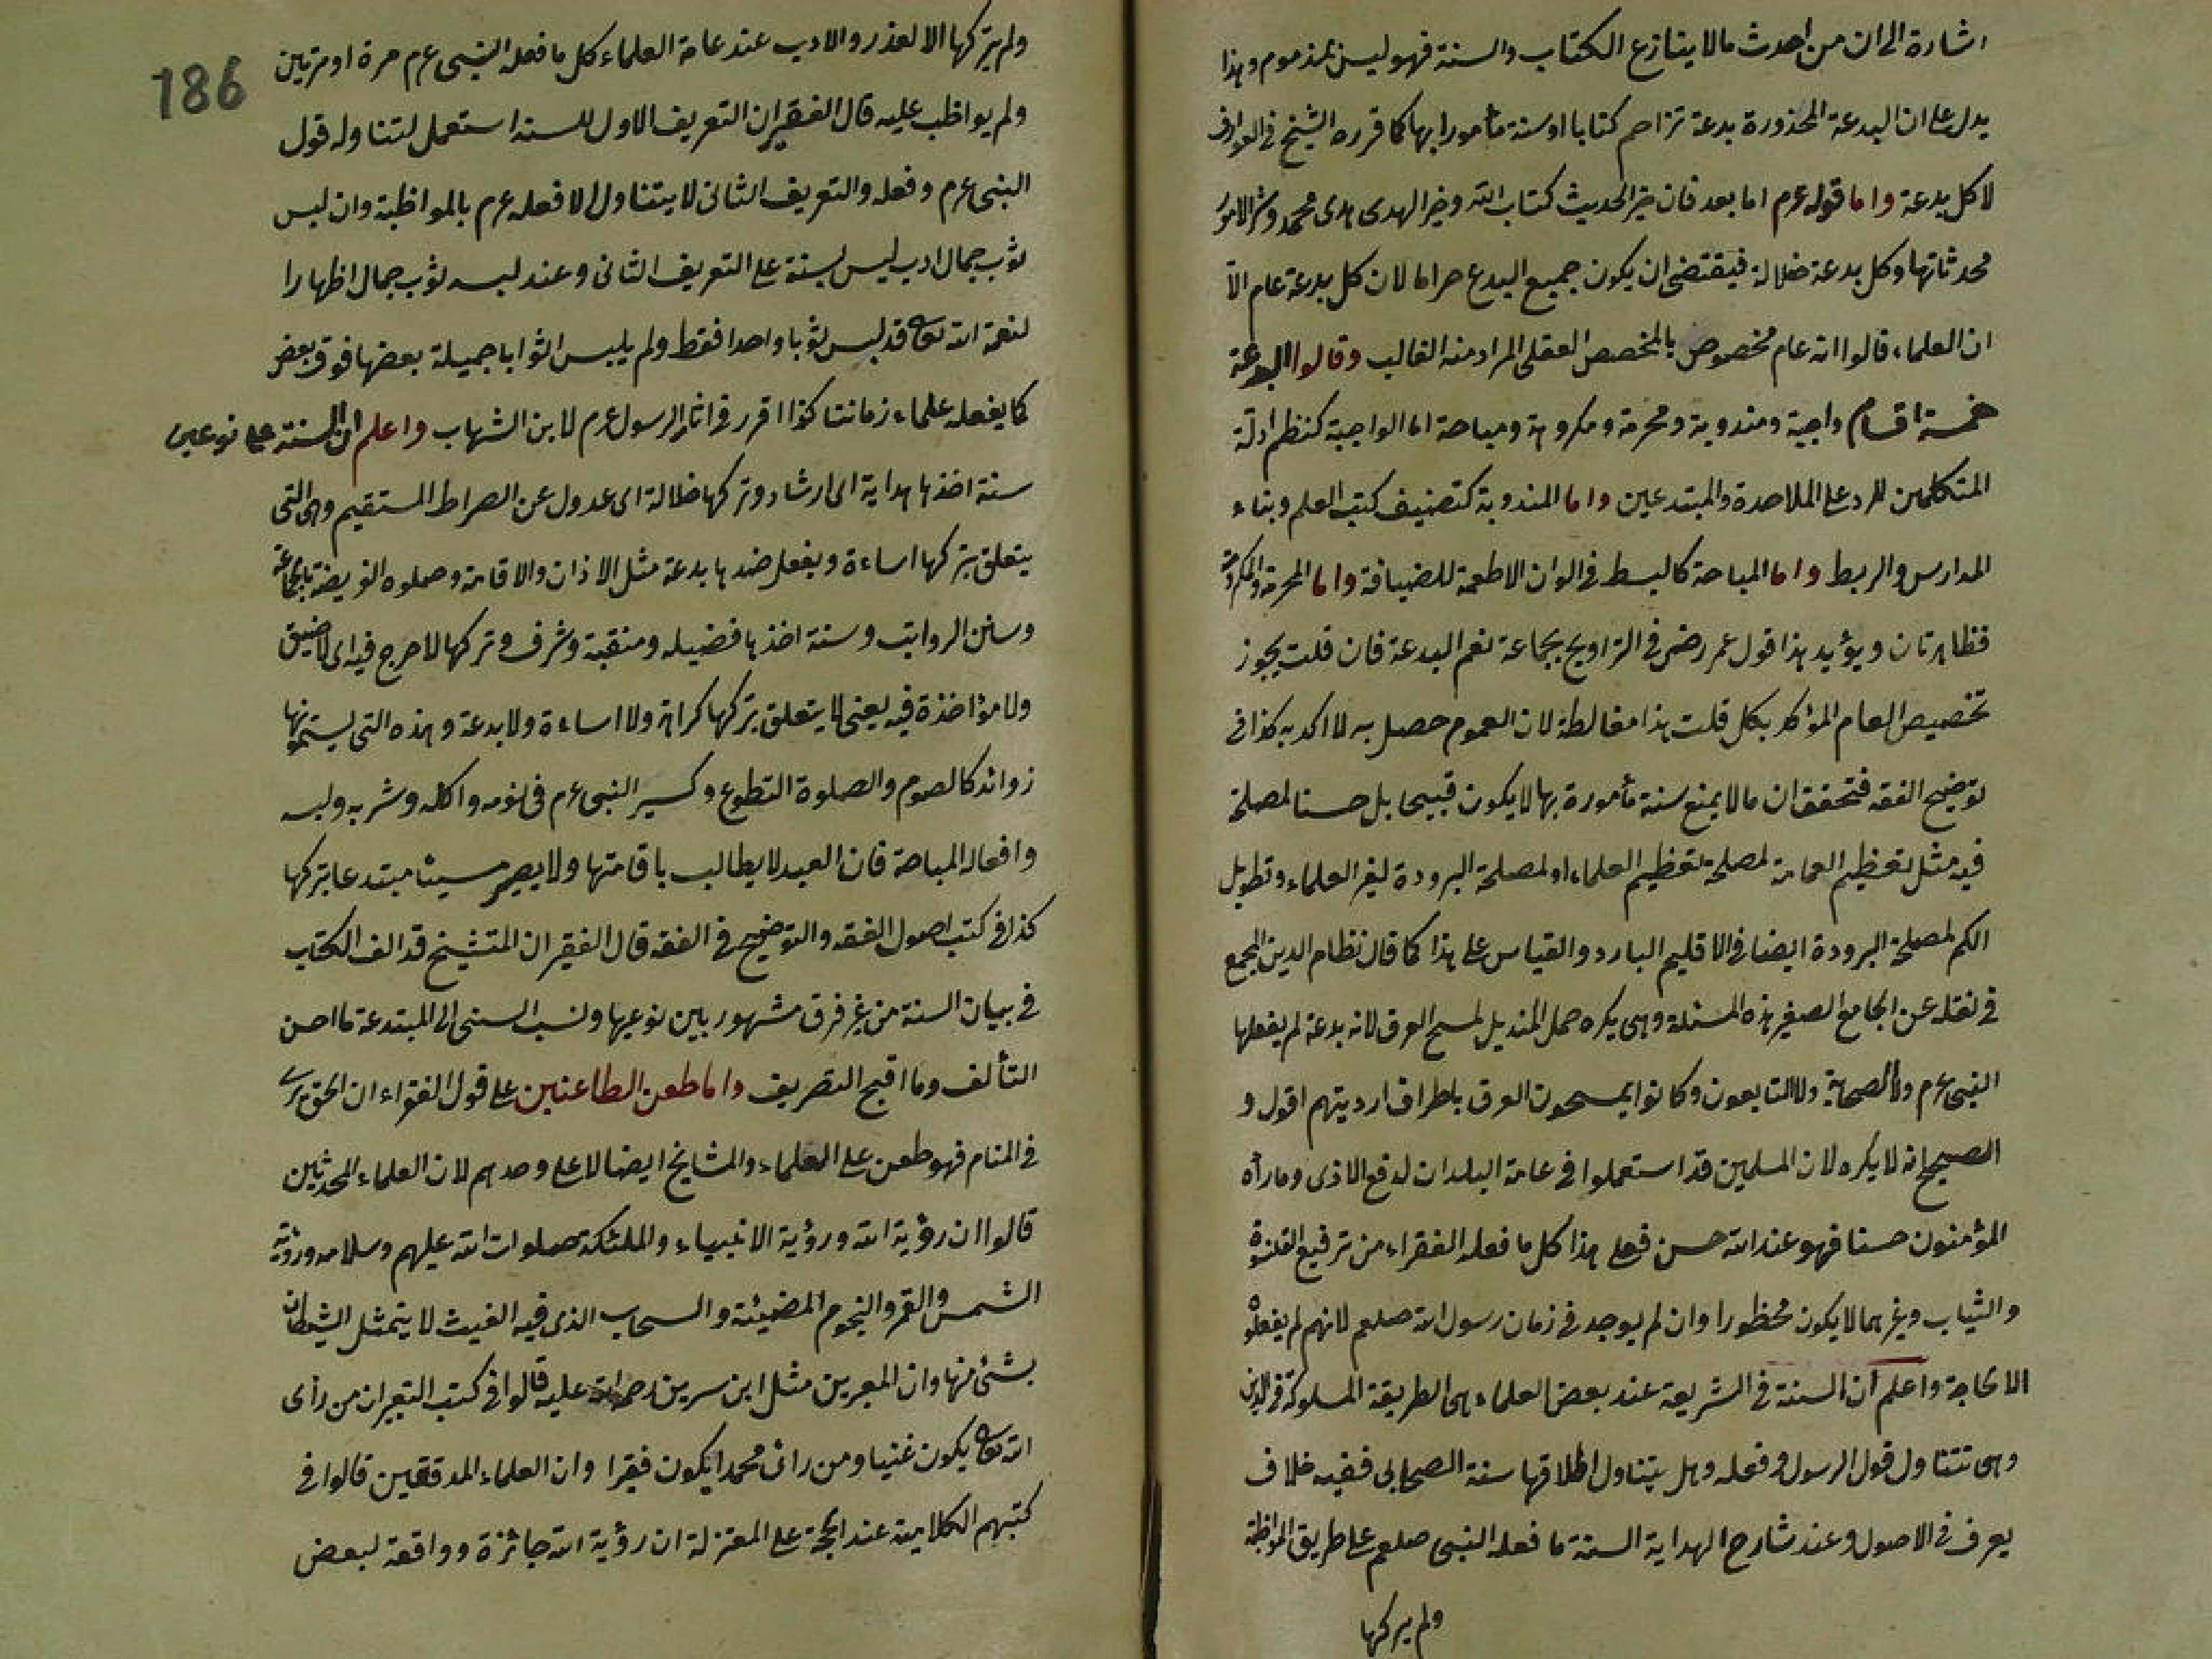 اشارة الى ان من احدث مالا ينازع الكتاب والسنة فهو ليس بمذموم وهذا
يدل على ان البدعة المحذورة بدعة تزاحم كتابا او سنة مأمورا بها كما قرره الشيخ في العوارف
لا كل بدعة واما قوله عرم اما بعد فان خير الحديث كتاب الله وخير الهدى هدى محمد وشر الامور
محدثاتها وكل بدعة ضلالة فيقتضى ان يكون جميع البدع حراما لان كل بدعة عام الا
ان العلماء قالوا انه عام مخصوص بالمخصص العقلى المراد منه الغالب وقالوا البدعة
خمسة اقسام واجبة ومندوبة ومحرمة ومكروهة ومباحة اما الواجبة كنظم ادلة
المتكلمين للرد على الملاحدة والمبتدعين واما المندوبة كتصنيف كتب العلم وبناء
المدارس والربط واما المباحة كالبسط في الوان الاطعمة للضيافة واما المحرمة والمكروهة
فظاهرتان ويؤيد هذا قول عمر رضى في التراويح بجماعة نعم البدعة فان قلت يجوز
تخصيص العام المؤكد بكل قلت هذا مغالطة لان العموم حصل به لا اكد به كذا في
توضيح الفقه فتحقق ان مالا يمنع سنة مأمورة بها لا يكون قبيحا بل حسنا لمصلحة
فيه مثل تعظيم العمامة لمصلحة تعظيم العلماء او لمصلحة البرودة لغير العلماء وتطويل
الكم لمصلحة البرودة ايضا في الاقليم البارد والقياس على هذا كما قال نظام الدين المجمع
في نقله عن الجامع الصغير هذه المسئلة وهى يكره حمل المنديل لمسح العرق لانه بدعة لم يفعلها
النبى عرم ولا الصحابة ولا التابعون وكانوا يمسحون العرق باطراف ارديتهم اقول و
الصحيح انه لا يكره لان المسلمين قد استعملوا في عامة البلدان لدفع الاذى وما رأه
المؤمنون حسنا فهو عند الله حسن فعلى هذا كل ما فعله الفقراء من ترقيع القلنسوة
والثياب وغيرهما لا يكون محظورا وان لم يوجد في زمان رسول الله صلعم لانهم لم يفعلوه
الا لحاجة واعلم ان السنة في الشريعة عند بعض العلماء هى الطريقة المسلوكة في الدين
وهى تتناول قول الرسول وفعله وهل يتناول اطلاقها سنة الصحابى ففيه خلاف
يعرف في الاصول وعند شارح الهداية السنة ما فعله النبى صلعم على طريق المواظبة
ولم يتركها
186
ولم يتركها الا لعذر والادب عند عامة العلماء كل ما فعله النبى عرم مرة او مرتين
ولم يواظب عليه قال الفقير ان التعريف الاول للسنة استعمل لتناوله قول
النبى عرم وفعله والتعريف الثانى لا يتناول الا فعله عرم بالمواظبة وان لبس
ثوب جمال ادب ليس بسنة على التعريف الثانى وعند لبسه ثوب جمال اظهارا
لنعمة الله تعالى قد لبس ثوبا واحدا فقط ولم يلبس اثوابا جميلة بعضها فوق بعض
كما يفعله علماء زماننا كذا اقرر في اثار الرسول عرم لابن الشهاب واعلم ان السنة على نوعين
سنة اخذها هداية اى ارشاد وتركها ضلالة اى عدول عن الصراط المستقيم وهى التى
يتعلق بتركها اساءة وبفعل ضدها بدعة مثل الاذان والاقامة وصلوة الفريضة بالجماعة
وسنن الرواتب وسنة اخذها فضيلة ومنقبة وشرف وتركها لا حرج فيه اى لا ضيق
ولا مؤاخذة فيه يعنى لا يتعلق بتركها كراهة ولا اساءة ولا بدعة وهذه التى يسمونها
زوائد كالصوم والصلوة التطوع وكسير النبى عرم في نومه واكله وشربه ولبسه
وافعاله المباحة فان العبد لا يطالب باقامتها ولا يصير مسيئا مبتدعا بتركها
كذا في كتب اصول الفقه والتوضيح في الفقه قال الفقير ان المتشيخ قد الف الكتاب
في بيان السنة من غير فرق مشهور بين نوعيها ونسب السنى الى المبتدعة ما احسن
التألف وما اقبح التصريف واما طعن الطاعنين على قول الفقراء ان الحق يرى
في المنام فهو طعن على العلماء والمشايخ ايضا لا على وحدهم لان العلماء المحدثين
قالوا ان رؤية الله ورؤية الانبياء والملئكة صلوات الله عليهم وسلامه ورؤية
الشمس والقمر والنجوم المضيئة والسحاب الذى فيه الغيث لا يتمثل الشيطان
بشئ منها وان المعبرين مثل ابن سرين رحمة الله عليه قالوا في كتب التعبير ان من رأى
الله تعالى يكون غنيا ومن رائ محمدا يكون فقيرا وان العلماء المدققين قالوا في
كتبهم الكلامية عند الحجة على المعتزلة ان رؤية الله جائزة وواقعة لبعض